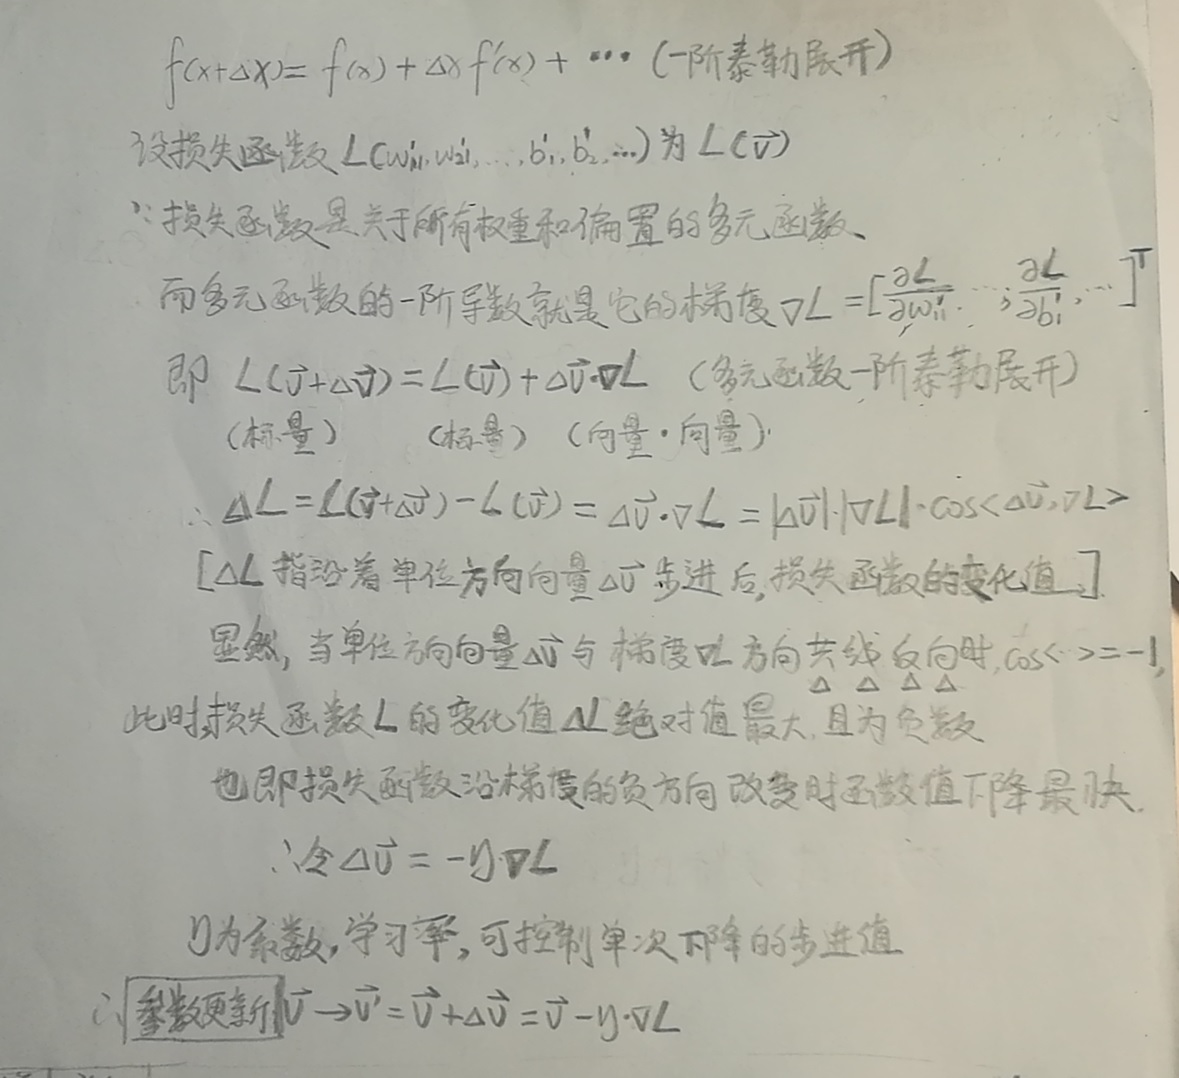 f(x+Δx)= f(x)+Δx f'(x)+ ··· (一阶泰勒展开)
设损失函数L(w¹₁₁,w¹₂₁,…,b¹₁,b¹₂,…)为L(v⃗)
∵损失函数是关于所有权重和偏置的多元函数、
而多元函数的一阶导数就是它的梯度∇L=[∂L/∂w¹₁₁,…,∂L/∂b¹₁,…]ᵀ
即 L(v⃗+Δv⃗)=L(v⃗)+Δv⃗·∇L (多元函数一阶泰勒展开)
(标量) (标量) (向量·向量)
∴ΔL=L(v⃗+Δv⃗)-L(v⃗)=Δv⃗·∇L=|Δv⃗|·|∇L|·cos<Δv⃗,∇L>
[ΔL指沿着单位方向向量Δv⃗步进后,损失函数的变化值.]
显然,当单位方向向量Δv⃗与梯度∇L方向共线反向时,cos<··>=-1,
此时,损失函数L的变化值ΔL绝对值最大,且为负数
也即损失函数沿梯度的负方向改变时函数值下降最快.
∴令Δv⃗=-η·∇L
η为系数,学习率,可控制单次下降的步进值
∴参数更新 v⃗→v⃗'=v⃗+Δv⃗=v⃗-η·∇L